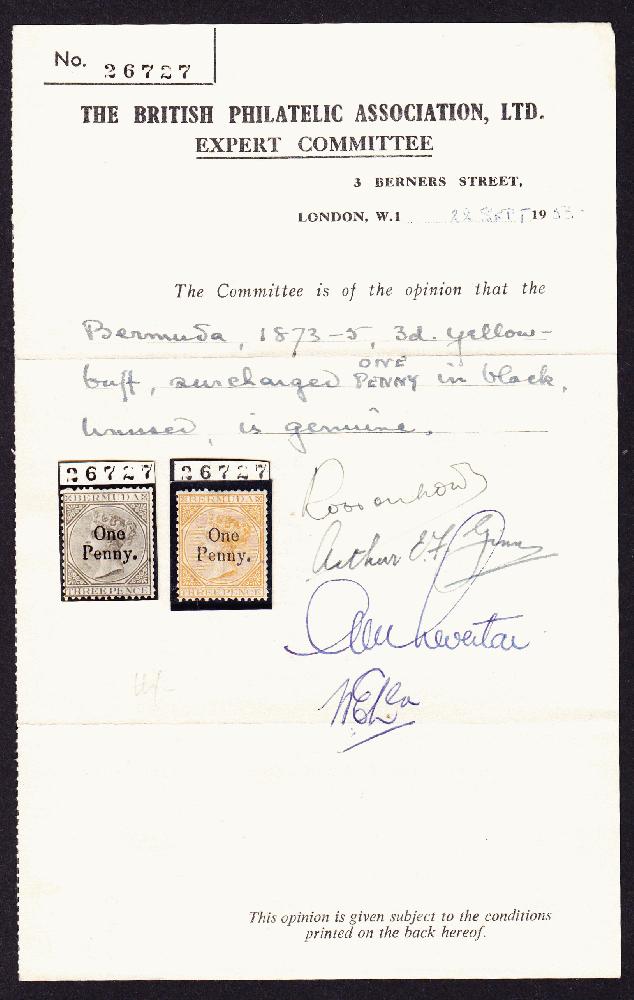 No. 26727
THE BRITISH PHILATELIC ASSOCIATION, LTD.
EXPERT COMMITTEE
3 BERNERS STREET,
LONDON, W.1 22 SEPT 1953
The Committee is of the opinion that the
Bermuda, 1873-5, 3d. yellow-
buff, surcharged ONE PENNY in black,
unused, is genuine.
26727
BERMUDA
One
Penny.
THREE PENCE
26727
BERMUDA
One
Penny.
THREE PENCE
Arthur E.F.
This opinion is given subject to the conditions
printed on the back hereof.